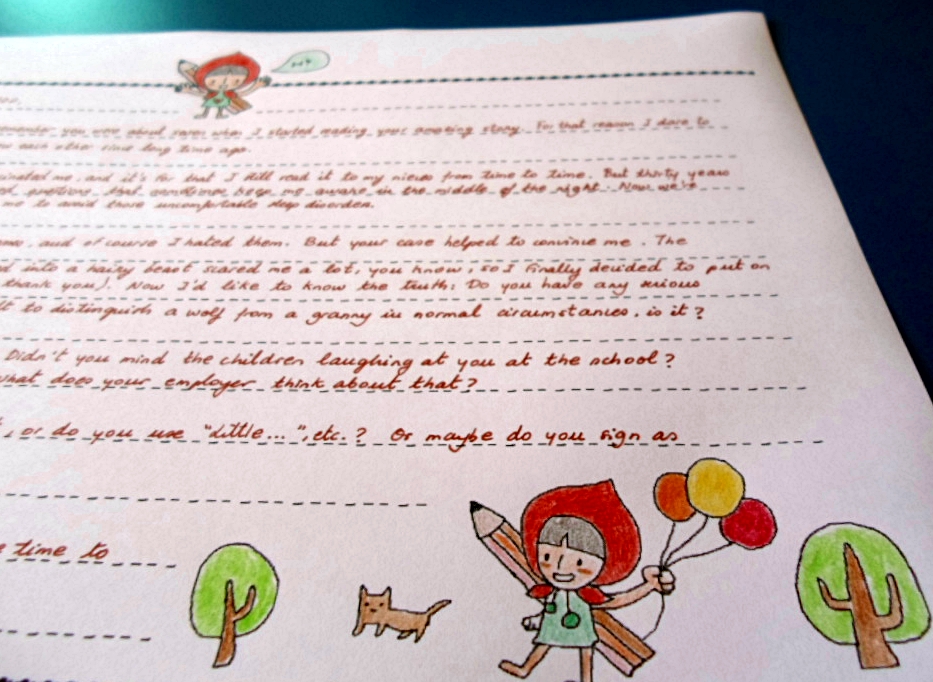 you were about seven when I started reading your amazing story. For that reason I dare to
each other since long time ago.
me, and it's for that I still read it to my nieces from time to time. But thirty years
questions that sometimes keep me awake in the middle of the night. Now we're
me to avoid those uncomfortable sleep disorders.
, and of course I hated them. But your case helped to convince me. The
into a hairy beast scared me a lot, you know, so I finally decided to put on
thank you). Now I'd like to know the truth: Do you have any serious
to distinguish a wolf from a granny in normal circumstances, is it?
Didn't you mind the children laughing at you at the school?
what does your employer think about that?
, or do you use "Little...", etc.? Or maybe do you sign as
time to